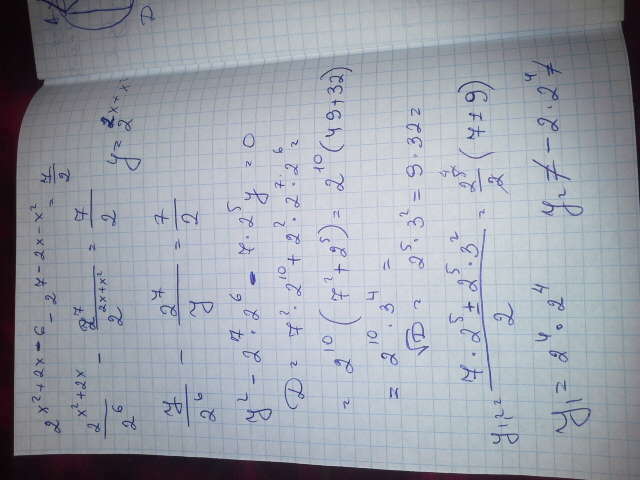 2^{x²+2x-6} - 2^{7-2x-x²} = 7/2
2^{x²+2x}/2^6 - 2^7/2^{2x+x²} = 7/2
y = 2^{2x+x²}
y/2^6 - 2^7/y = 7/2
y² - 2^7·2^6 - 7·2^5 y = 0
D = 7²·2^{10} + 2²·2^7·2^6 =
= 2^{10}(7² + 2^5) = 2^{10}(49+32)
= 2^{10}·3^4 =
√D = 2^5·3² = 9·32 =
y_{1,2} = (7·2^5 ± 2^5·3²)/2 = 2^5/2 (7±9)
y_1 = 2^4·2^4
y_2 ≠ -2·2^4 ≠
D